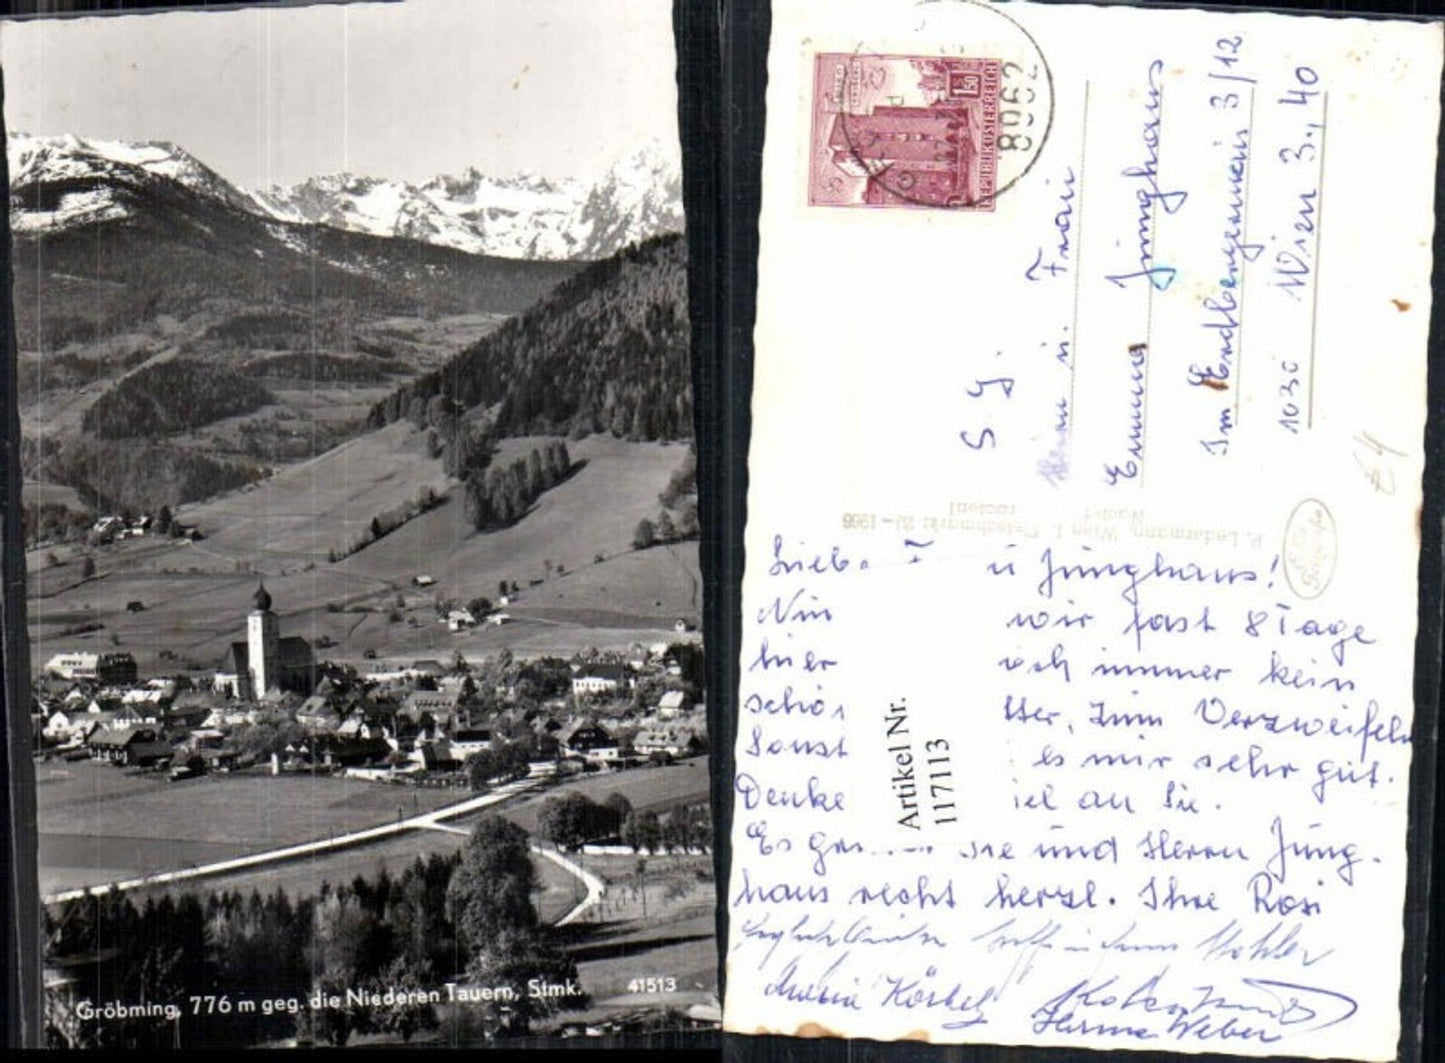 Gröbming, 776 m geg. die Niederen Tauern, Stmk. 41513
1.50
REPUBLIK ÖSTERREICH
8962
S. G.
Herrn u. Frau
Emma Junghaus
Im Erdbergermais 3/12
1030 Wien 3., 40
P. Ledermann, Wien I, Fleischmarkt 20 - 1966
Artikel Nr.
117113
u Junghaus!
Nun wir fast 8 Tage
hier och immer kein
schö tter, zum Verzweifeln
Sonst es mir sehr gut.
Denke iel an Sie.
Es Sie und Herrn Jung-
haus recht herzl. Ihre Rosi
Kohler
Maria
Herma Weber